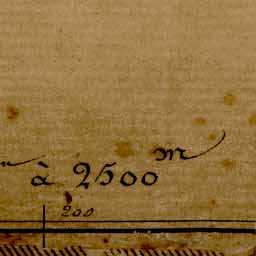 à 2500 m
200